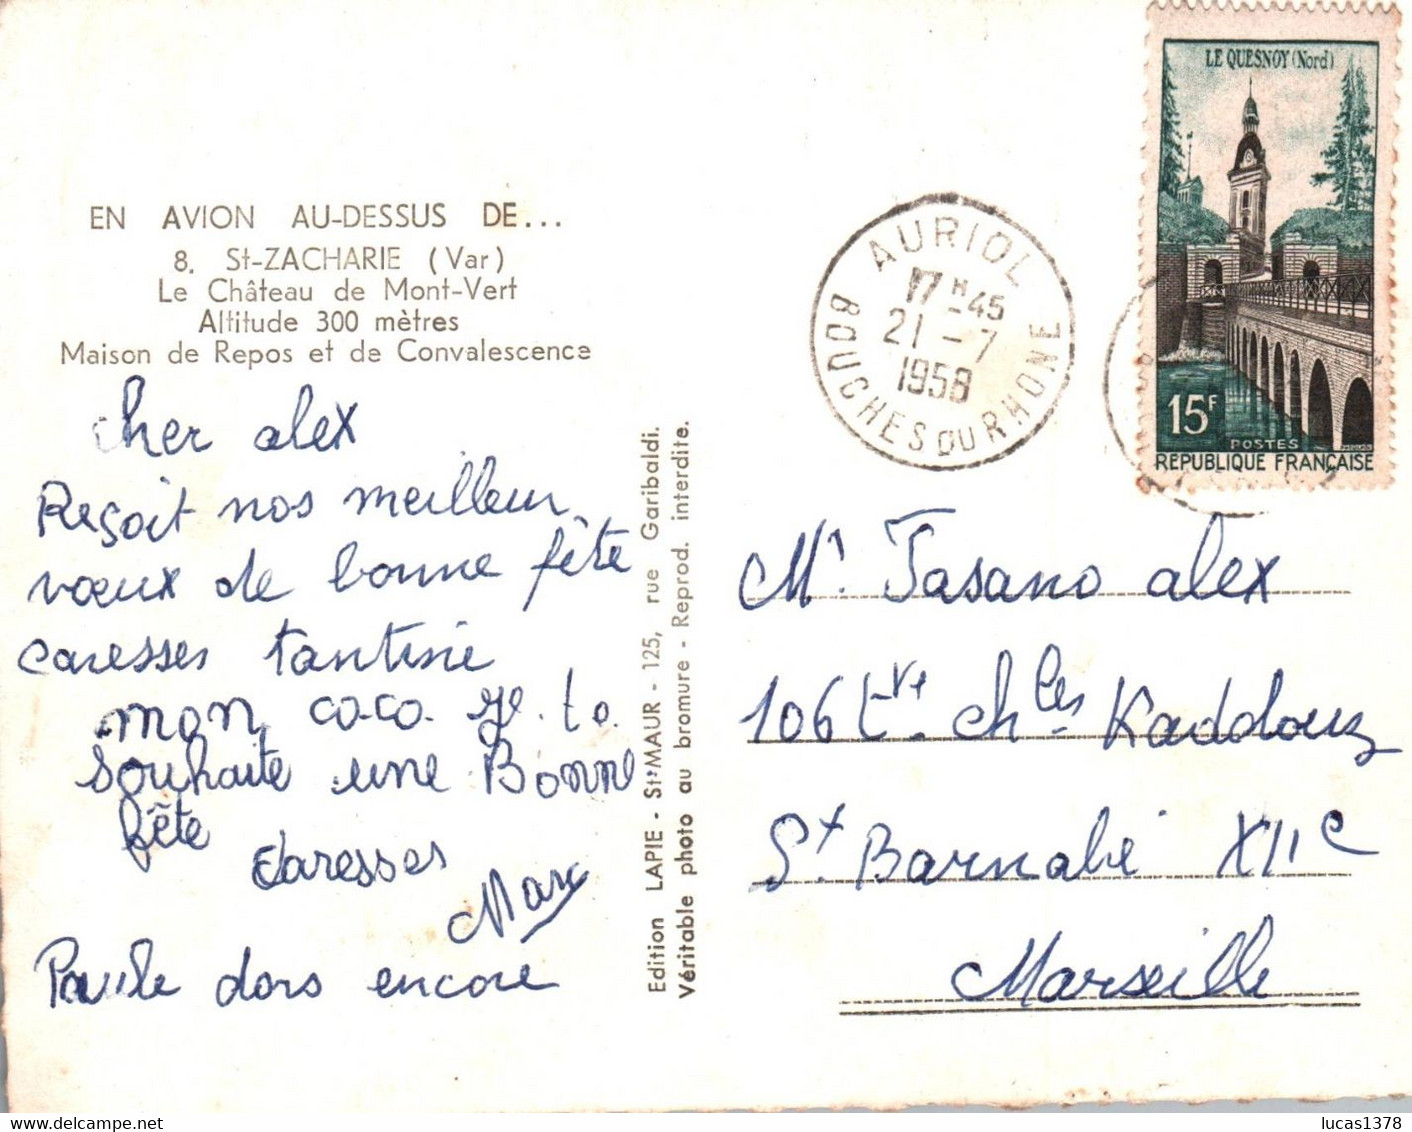 EN AVION AU-DESSUS DE...
8. St-ZACHARIE (Var)
Le Château de Mont-Vert
Altitude 300 mètres
Maison de Repos et de Convalescence
Cher alex
Reçoit nos meilleur
vœux de bonne fête
caresses tantine
mon co-co. Je. te.
souhaite une Bonne
fête
Caresses
Marc
Paule dors encore
Edition LAPIE - St-MAUR - 125, rue Garibaldi.
Véritable photo au bromure - Reprod. interdite.
AURIOL
17H-45
21 - 7
1958
BOUCHES DU RHONE
LE QUESNOY (Nord)
15F
POSTES
RÉPUBLIQUE FRANÇAISE
Mr. Fasano alex
106 tve. Chles Kaddouz
St Barnabé XIIe
Marseille
lucas1378